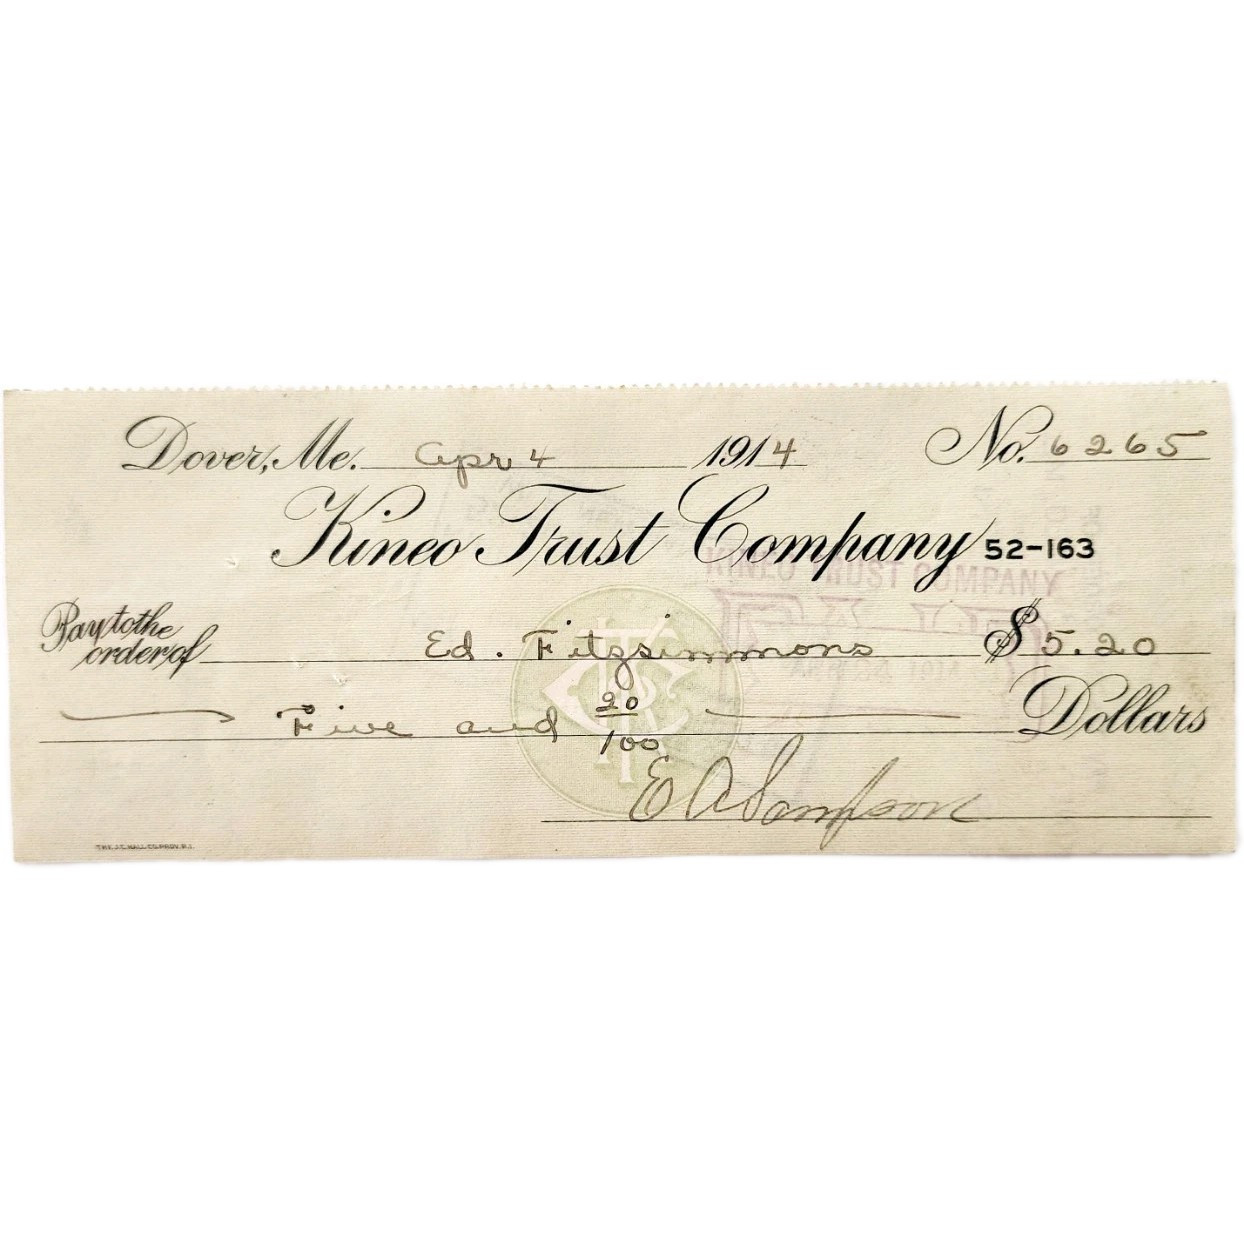 Dover, Me. Apr 4 1914 No. 6265
Kineo Trust Company 52-163
KINEO TRUST COMPANY
Pay to the order of Ed. Fitzsimmons $5.20
Five and 20/100 Dollars
E A Sampson
THE J.C. HALL CO. PROV. R.I.